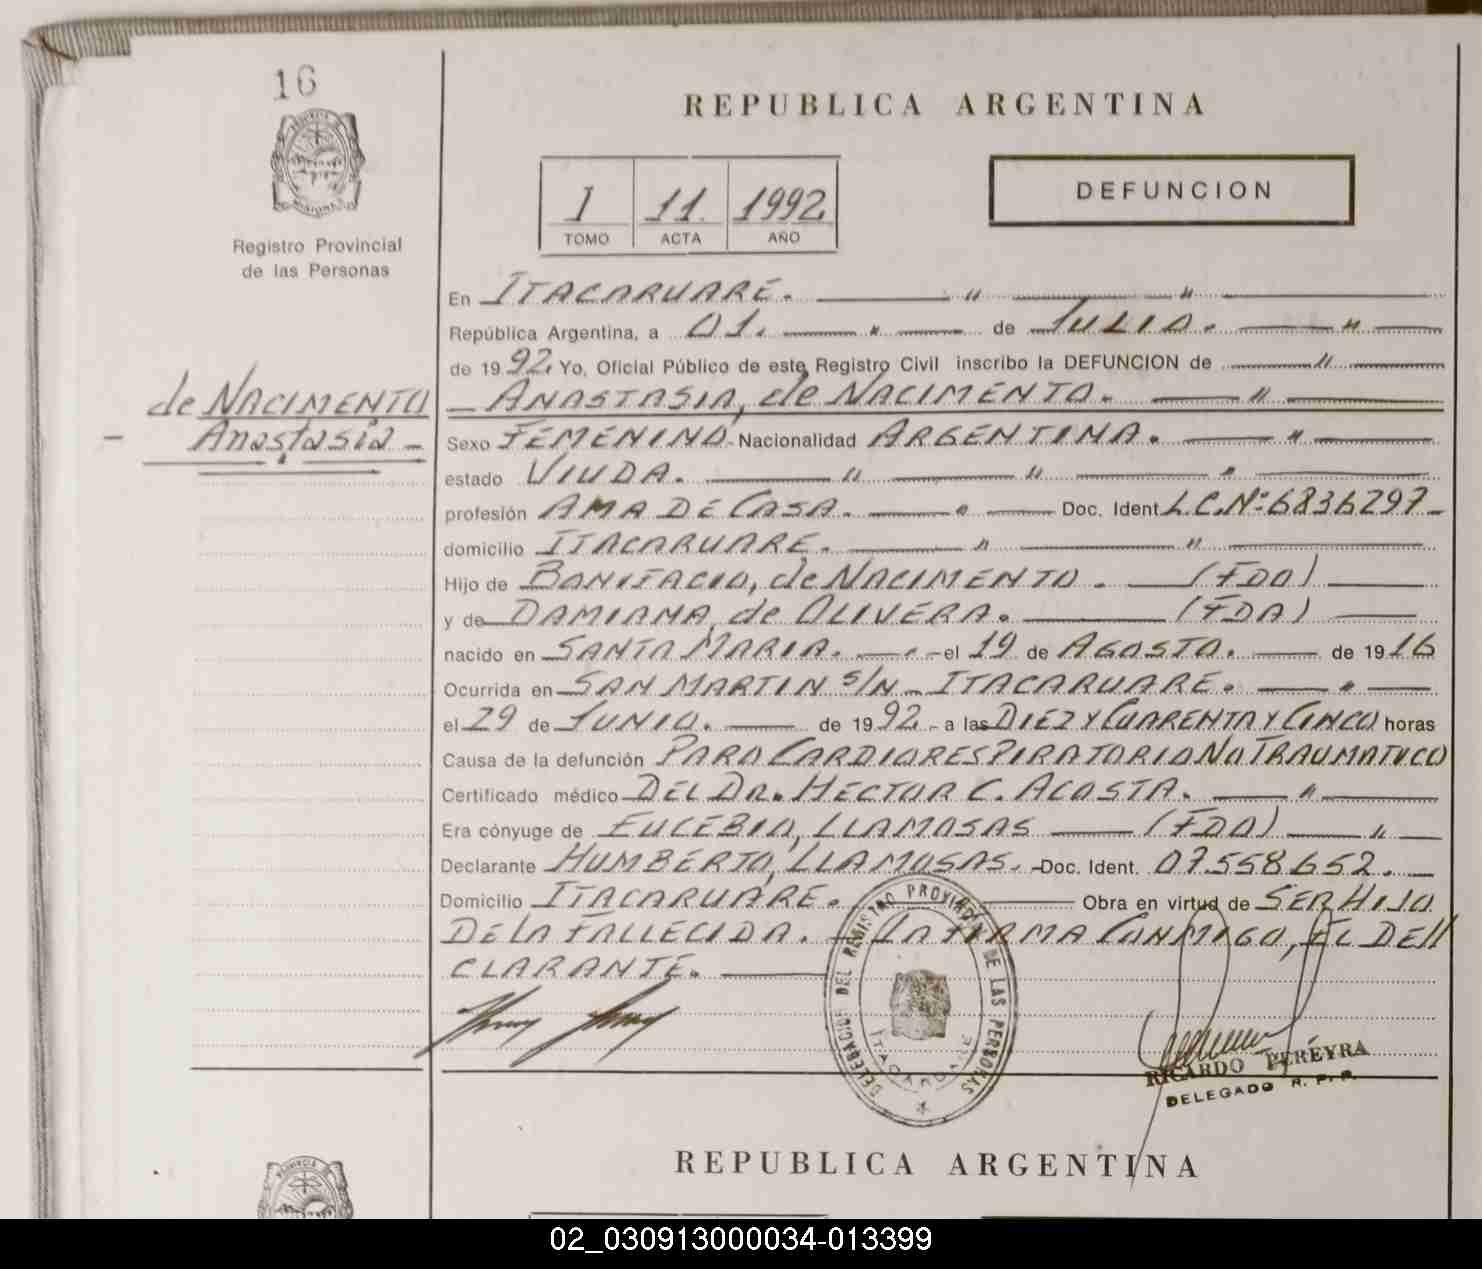 16
REPUBLICA ARGENTINA
Registro Provincial
de las Personas
I 11. 1992
TOMO ACTA AÑO
DEFUNCION
En ITACARUARE.
República Argentina, a 01. de JULIO.
de 1992. Yo, Oficial Público de este Registro Civil inscribo la DEFUNCION de
de NACIMENTO
Anastasia
ANASTASIA, de NACIMENTO.
Sexo FEMENINO. Nacionalidad ARGENTINA.
estado VIUDA.
profesión AMA DE CASA. Doc. Ident. L.C.Nº 6836297
domicilio ITACARUARE.
Hijo de BONIFACIO, de NACIMENTO. (FDO)
y de DAMIANA, de OLIVERA. (FDA)
nacido en SANTA MARIA. el 19 de AGOSTO. de 1916
Ocurrida en SAN MARTIN S/N ITACARUARE.
el 29 de JUNIO. de 1992. a las DIEZ Y CUARENTA Y CINCO horas
Causa de la defunción PARO CARDIORESPIRATORIO NO TRAUMATICO
Certificado médico DEL DR. HECTOR C. ACOSTA.
Era cónyuge de EUCEBIO, LLAMOSAS (FDO)
Declarante HUMBERTO, LLAMOSAS. Doc. Ident. 07.558.652.
Domicilio ITACARUARE. Obra en virtud de SER HIJO
DE LA FALLECIDA. LA FIRMA CONMIGO, EL DE//
CLARANTE.
DELEGACION DEL REGISTRO PROVINCIAL DE LAS PERSONAS
ITACARUARE
RICARDO PEREYRA
DELEGADO R. P. P.
REPUBLICA ARGENTINA
02_030913000034-013399